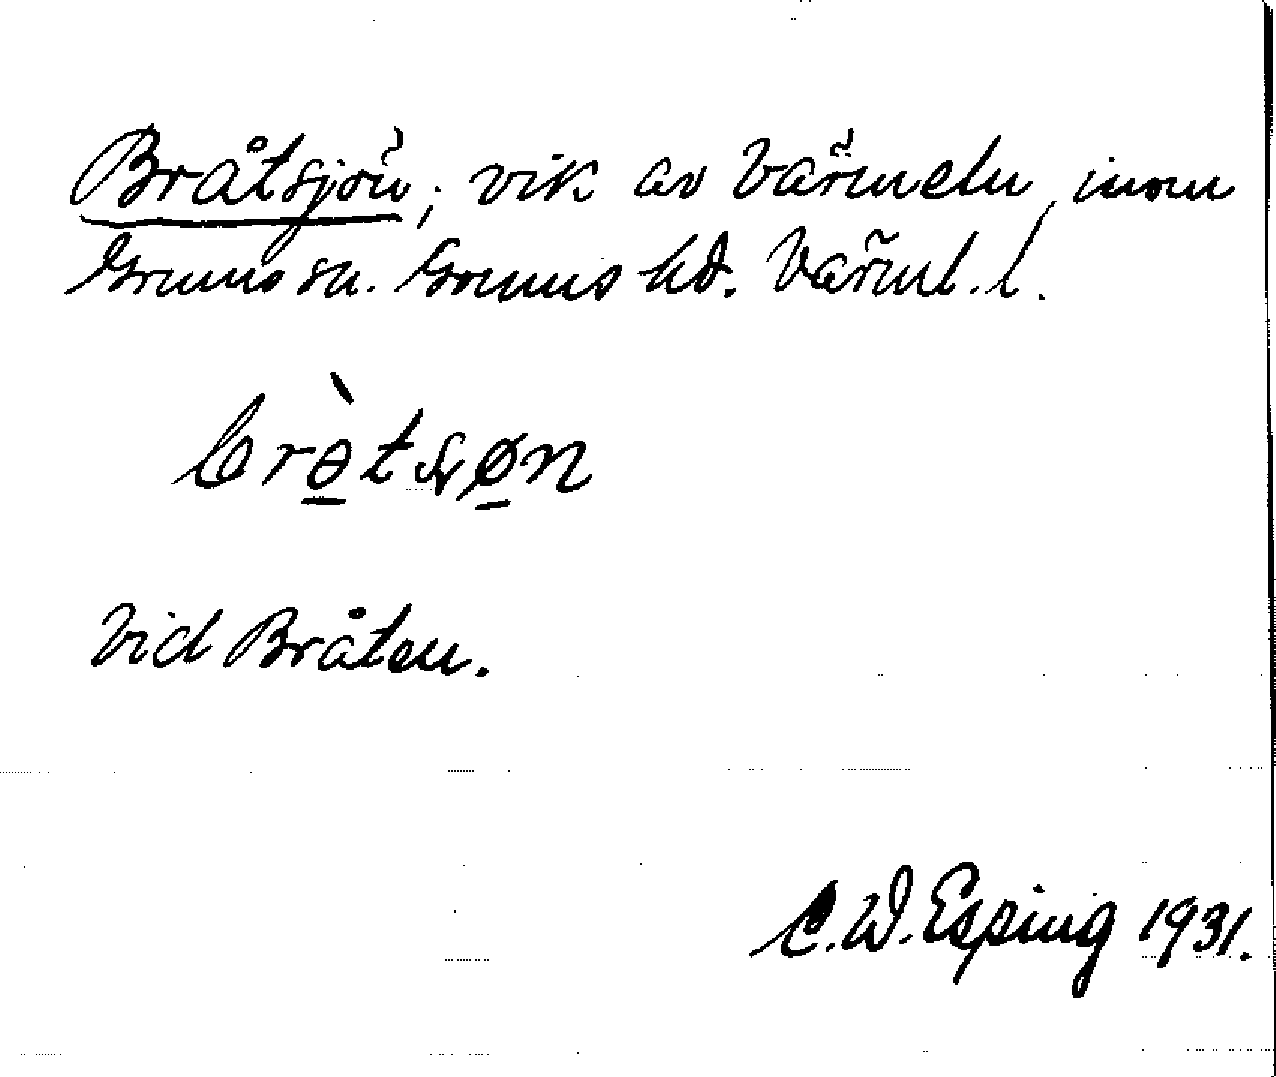 Bråtsjön, vik av Värmeln inom
Grums sn. Grums hd. Värml. l.
Vid Bråten.
C. W. Esping 1931.